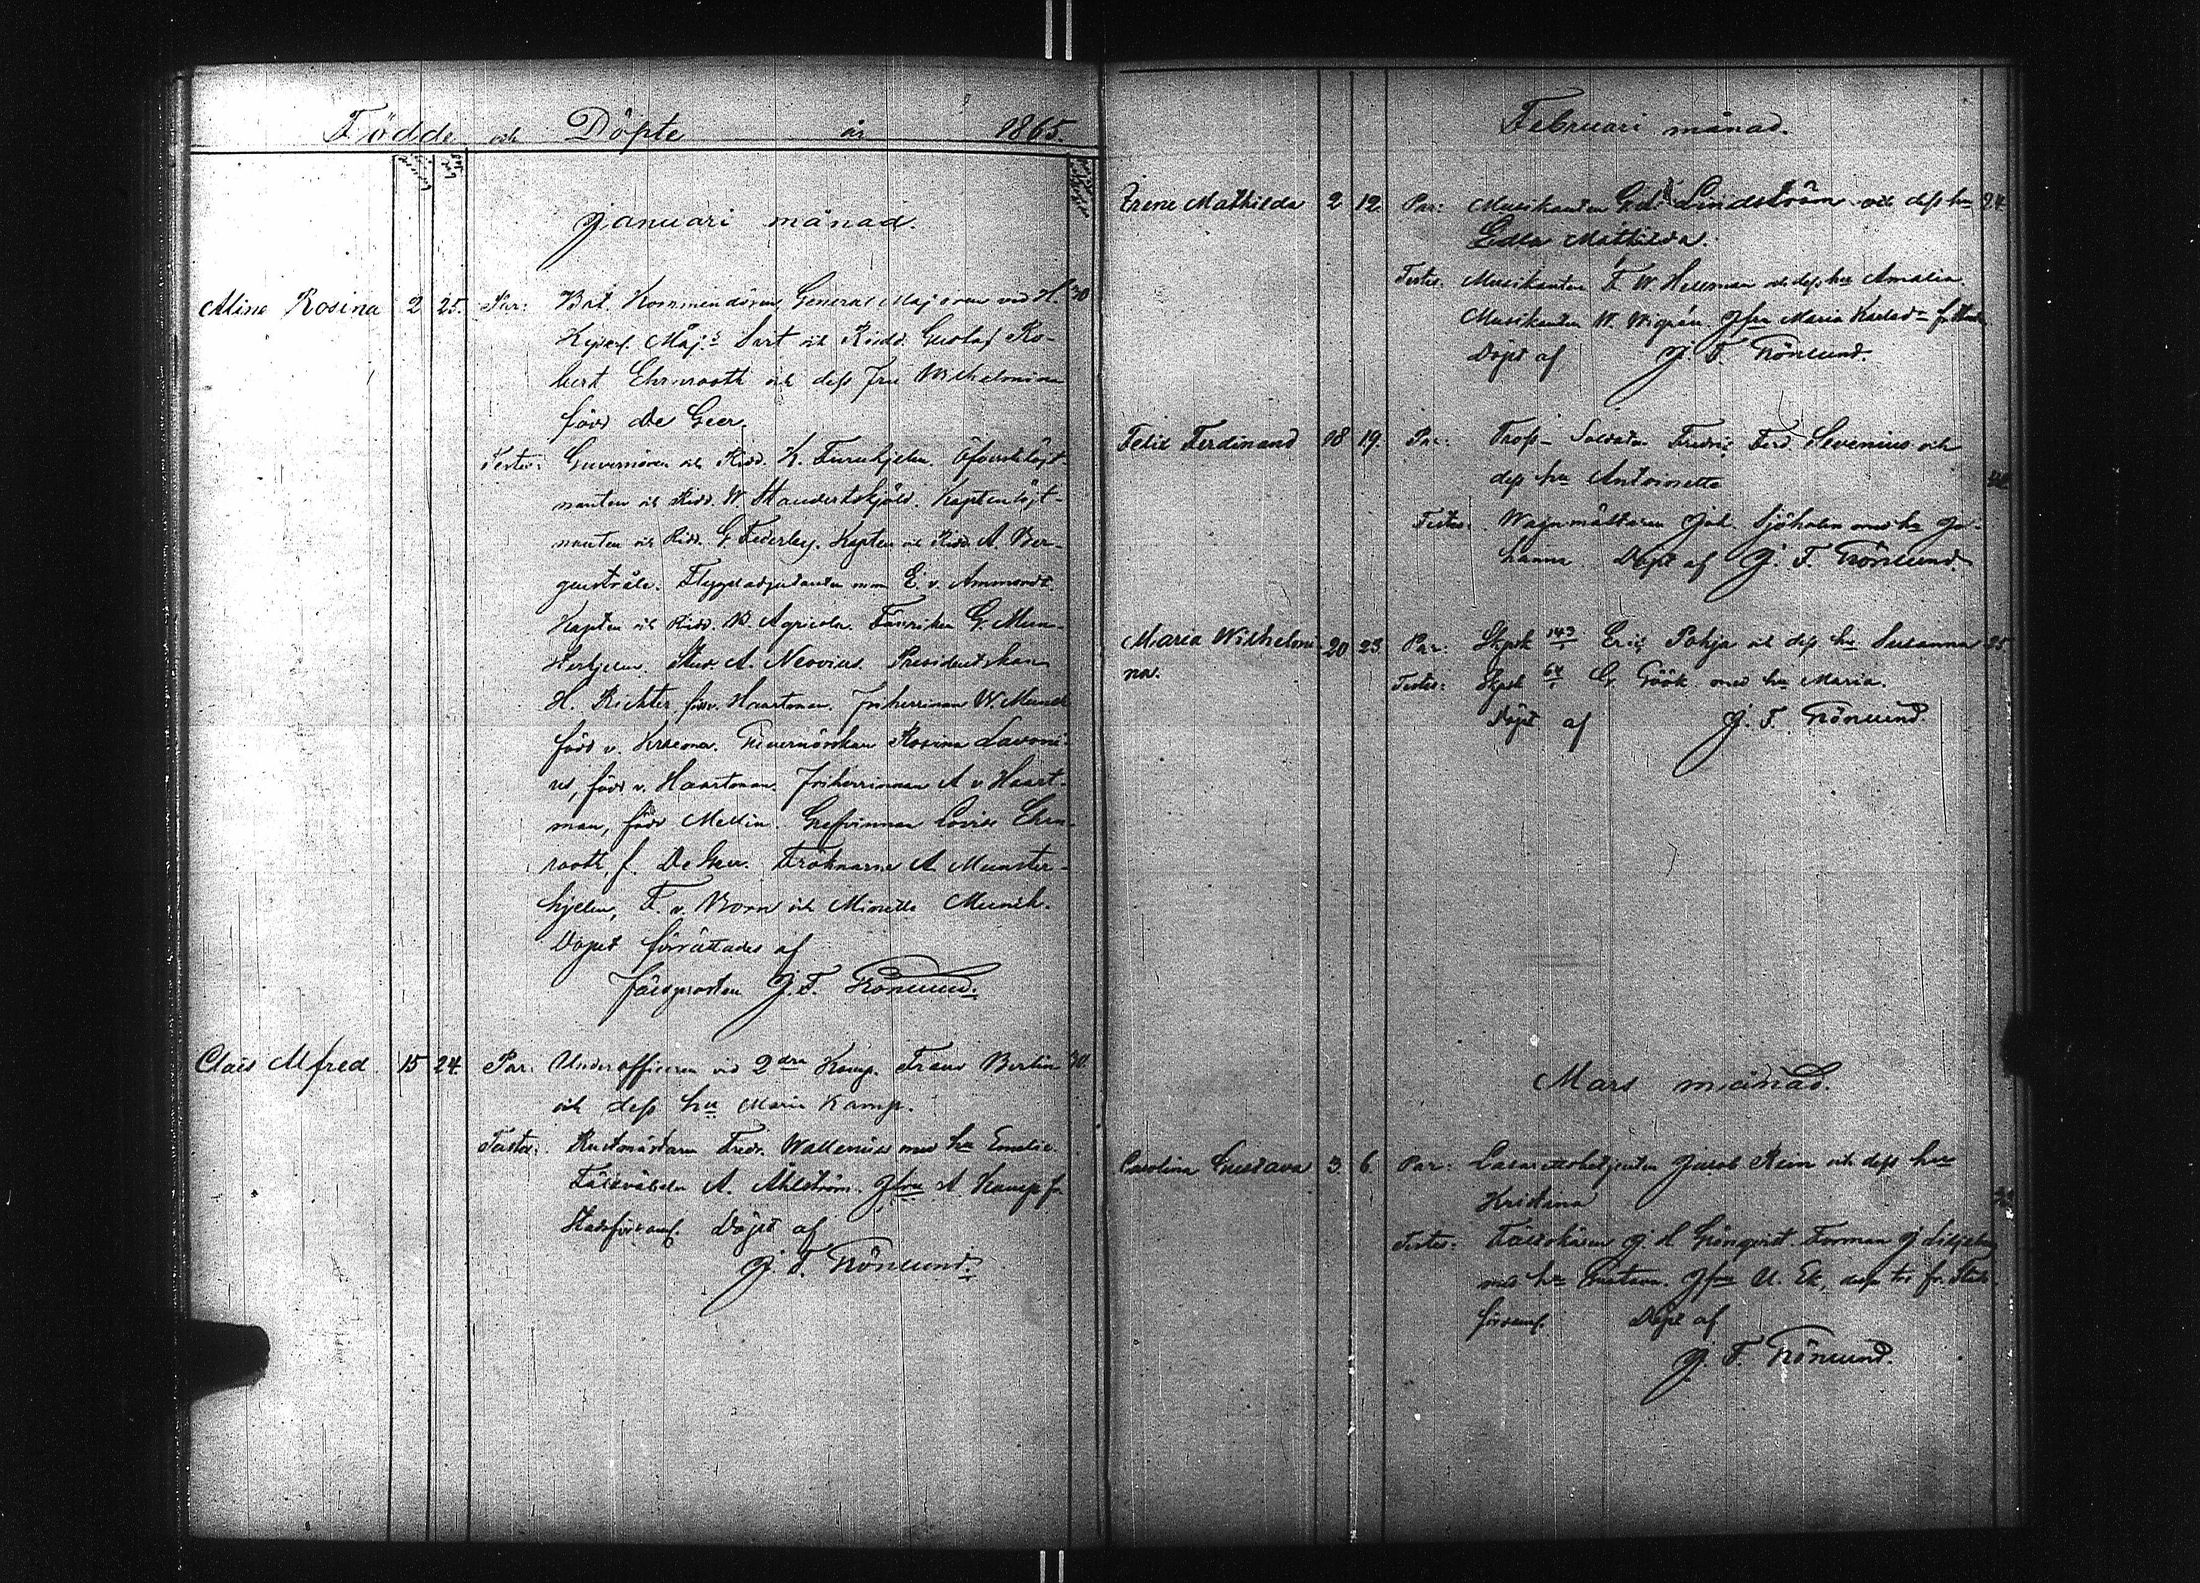 Födde och Döpte år 1865.
Januari månad.
Aline Rosina 2 25. Par: Bat. Kommendören, General Majoren vid H. 30
Kejserl. Maj:s Svit och Ridd. Gustaf Ro-
bert Ehrnrooth och dess Fru Wilhelmina
född De Geer.
Testes: Guvernören och Ridd. H. Furuhjelm. Öfverstelöjt-
nanten och Ridd. W Standertskjöld. Kaptenlöjt-
nanten och Ridd. G Federley. Kapten och Ridd. A. Ber-
genstråle. Flygeladjutanten E v. Ammondt.
Kapten och Ridd. Agricola. Fänriken G. Mun-
sterhjelm. Stud. A. Neovius. Presidentskan
H. Richter född v. Haartman. Friherrinnan W. Munck
född v. Kræmer. Guvernörskan Rosina Lavoni-
us, född v. Haartman. Friherrinnan A v Haart-
man, född Mellin. Grefvinnan Lovise Ehrn-
rooth, f. De Geer. Fröknarne A. Munster-
hjelm, F. v. Born och Minette Munck.
Döpet förrättades af
fältprosten J. F. Grönlund.
Claës Alfred 15 24. Par: Underofficeren vid 2dra Komp. Frans Berlin 30.
och dess hu Maria Kamp.
Testes: Rustmästaren Fredr. Wallenius med hu Emelie.
Fältväbeln A. Åhlström. Jfru A. Kamp fr
Stadsförsaml. Döpt af
J. F. Grönlund.
Februari månad.
Irene Mathilda 2 12. Par: Musikanten Lindström och dess hu 24.
Edla Mathilda.
Testes: Musikanten F. W. Hellman och dess hu Amalia.
Musikanten W. Wigrén. Jfru Maria
Döpt af J. F. Grönlund.
Felix Ferdinand 18 19. Par: Tross-Soldaten Fredric Ferd. Sevenius och
dess hu Antoinette
Testes: Wagnmästaren Joh. Sjöholm med hu Jo-
hanna. Döpt af J. F. Grönlund.
Maria Wilhelmi- 20 23. Par: Skpsk 143 Eric Pohja och dess hu Susanna 25.
na. Testes: Skpsk 64 G. Göök med hu Maria.
Döpt af J. F. Grönlund.
Mars månad.
Carolina Gustava 3. 6. Par: Lasarettsbetjenten Jacob Rein och dess hu
Kristina
Testes: J. A Grönqvist Forman J. Liljeberg
med hu Gustava. Jfru U. Ek, fr. Stads-
församl. Döpt af
J. F. Grönlund.